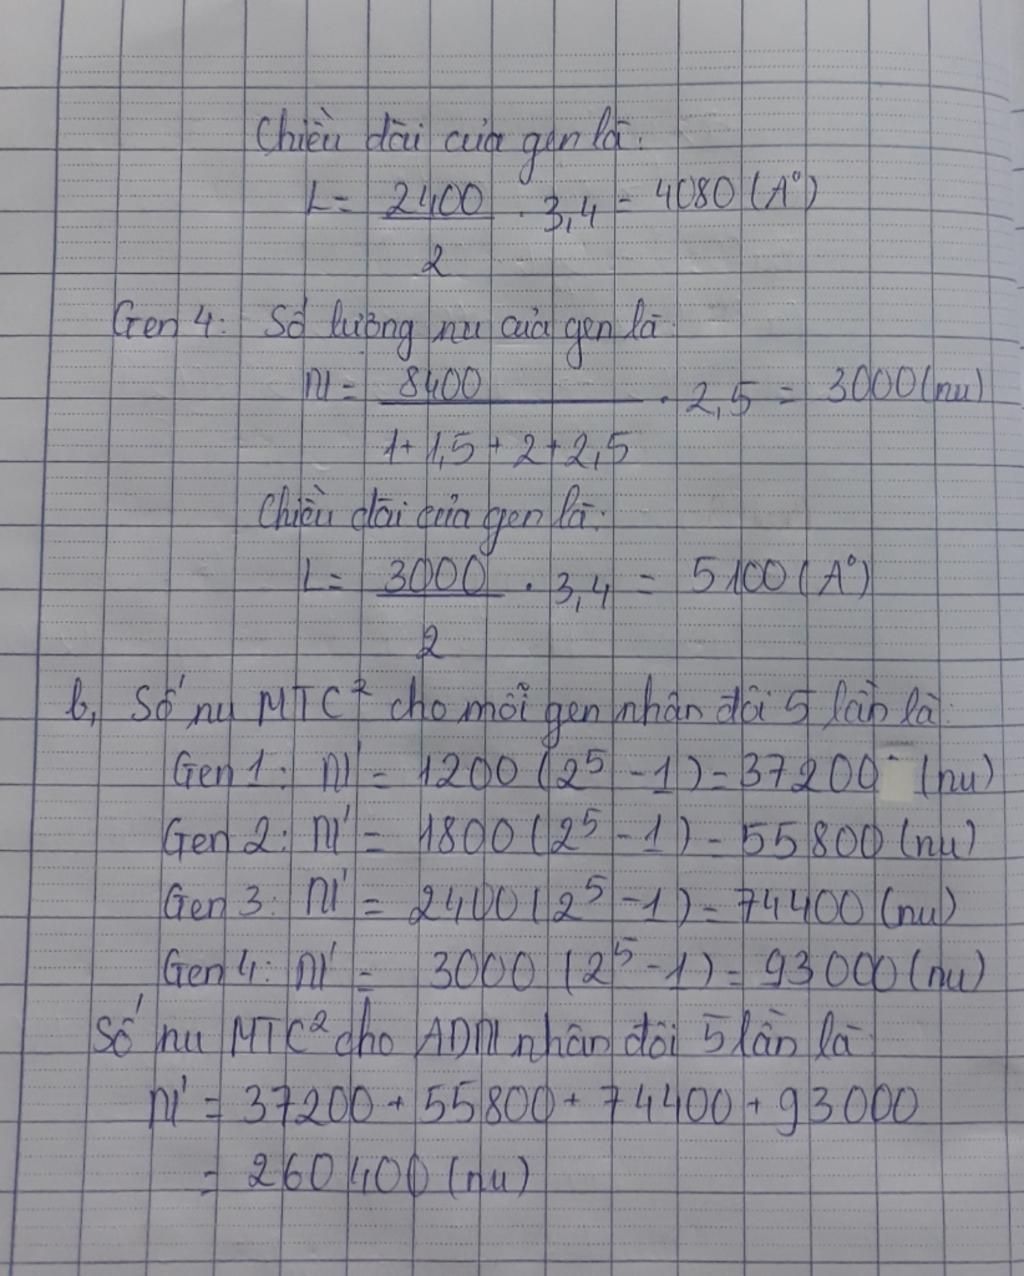 Chiều dài của gen là:
L = 2400 / 2 . 3,4 = 4080 (A°)
Gen 4: Số lượng nu của gen là:
N = 8400 / 1 + 1,5 + 2 + 2,5 . 2,5 = 3000 (nu)
Chiều dài của gen là:
L = 3000 / 2 . 3,4 = 5100 (A°)
b, Số nu MTC² cho mỗi gen nhân đôi 5 lần là:
Gen 1: N' = 1200 (2⁵ - 1) = 37200 (nu)
Gen 2: N' = 1800 (2⁵ - 1) = 55800 (nu)
Gen 3: N' = 2400 (2⁵ - 1) = 74400 (nu)
Gen 4: N' = 3000 (2⁵ - 1) = 93000 (nu)
Số nu MTC² cho ADN nhân đôi 5 lần là:
N' = 37200 + 55800 + 74400 + 93000
= 260400 (nu)